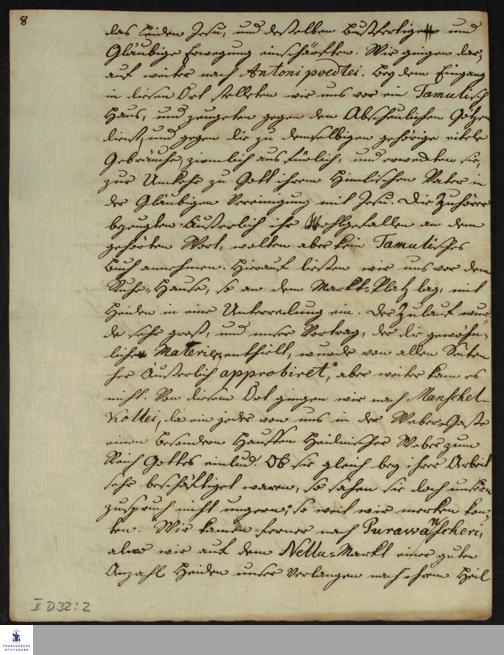 8
das Leiden Jesu, und desselben bußfertige und
Gläubige Erwegung einschärften. Wir gingen dar-
auf weiter nach Antoni poedtei. bey dem Eingang
in diesen Ort stelleten wir uns vor ein Tamulisch
Haus, und zeugeten gegen den Abscheulichen Götzen
dienst, und gegen die zu demselbigen gehörige eitele
Gebräuche, ziemlich ausfürlich, und erweckten sie,
zur Umkehr zu Gott ihrem Himlischen Vater in
der Gläubigen Vereinigung mit Jesu. Die Zuhörer
bezeugten äußerlich ihr Wohlgefallen an dem
gehörten Wort, wolten aber kein Tamulisches
Buch annehmen. Hierauf ließen wir uns vor dem
Ruhe-Hause, so an dem Markt-Platz lag, mit
Heiden in eine Unterredung ein. Der Zulauf wur
de sehr groß, und unser Vortrag, der die gewöhn-
liche Materie enthielt, wurde von allen Seiten
her äußerlich approbiret, aber weiter kam es
nicht. Von diesem Ort gingen wir nach Manschel
Kollei, da ein jeder von uns in der Weber-Gaße
einen besondern Hauffen Heidnischer Weber zum
Reich Gottes einlud. Ob sie gleich bey ihrer Arbeit
sehr beschäftiget waren, so sahen sie doch unsern
zuspruch nicht ungern, so weit wir merken kon-
ten. Wir kamen ferner nach Purawatscheri,
alwo wir auf dem Nellu-Markt einer guten
Anzahl Heiden unser Verlangen nach ihrem Heil
II D32:2
FRANCKESCHE
STIFTUNGEN